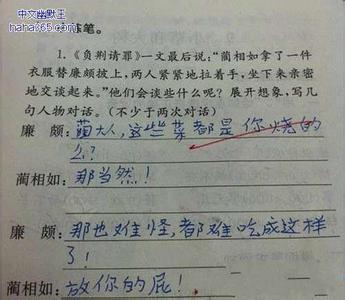 中文幽默王
haha365.com
练笔。
1.《负荆请罪》一文最后说：“蔺相如拿了一件
衣服替廉颇披上，两人紧紧地拉着手，坐下来亲密
地交谈起来。”他们会谈些什么呢？展开想象，写几
句人物对话。（不少于两次对话）
廉 颇：蔺大人，这些菜都是你烧的
么？
蔺相如：那当然！
廉 颇：那也难怪，都难吃成这样
了！
蔺相如：放你的屁！